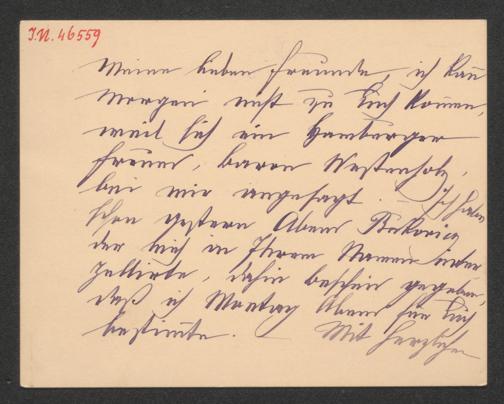 J.N. 46559
Meine lieben Freunde, ich kann
morgen nicht zu Euch kommen,
weil sich ein Hamburger
Freund, Baron Westenholz,
bei mir angesagt. – Ich habe
schon gestern Abend
der mich in Ihrem Namen inter
pellirte, dahin bescheid gegeben,
daß ich Montag Abend für Euch
bestimmte. – Mit herzlichen